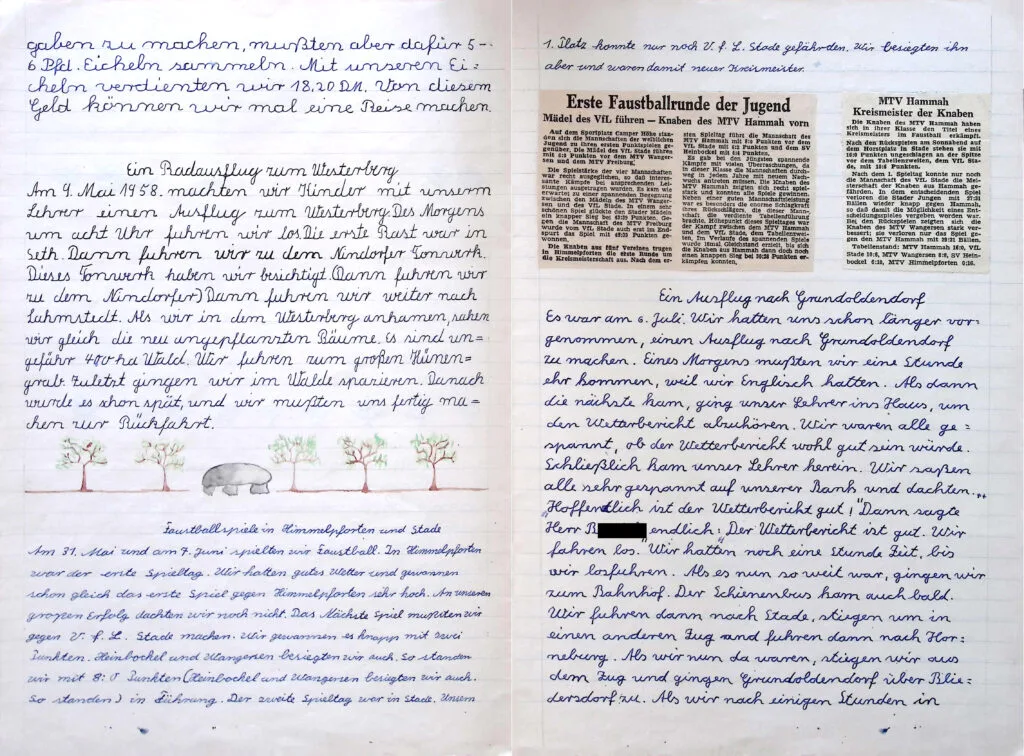 gaben zu machen, mußten aber dafür 5-
6 Pfd. Eicheln sammeln. Mit unseren Ei=
cheln verdienten wir 18,20 DM. Von diesem
Geld können wir mal eine Reise machen.
Ein Radausflug zum Westerberg
Am 9. Mai 1958. machten wir Kinder mit unserm
Lehrer einen Ausflug zum Westerberg. Des Morgens
um acht Uhr fuhren wir los. Die erste Rast war in
Seth. Dann fuhren wir zu dem Nindorfer Tonwerk.
Dieses Tonwerk haben wir besichtigt. (Dann fuhren wir
zu dem Nindorfer) Dann fuhren wir weiter nach
Lahmstedt. Als wir in dem Westerberg ankamen, sahen
wir gleich die neu angepflanzten Bäume. Es sind un=
gefähr 400 ha Wald. Wir fuhren zum großen Hünen=
grab. Zuletzt gingen wir im Walde spazieren. Danach
wurde es schon spät, und wir mußten uns fertig ma=
chen zur Rückfahrt.
Faustballspiele in Himmelpforten und Stade
Am 31. Mai und am 7. Juni spielten wir Faustball. In Himmelpforten
war der erste Spieltag. Wir hatten gutes Wetter und gewannen
schon gleich das erste Spiel gegen Himmelpforten sehr hoch. An unseren
großen Erfolg dachten wir noch nicht. Das Nächste Spiel mußten wir
gegen V. f. L. Stade machen. Wir gewannen es knapp mit zwei
Punkten. Heinbockel und Wangersen besiegten wir auch. So standen
wir mit 8:0 Punkten (Heinbockel und Wangersen besiegten wir auch.
So standen) in Führung. Der zweite Spieltag war in Stade. Unsern
1. Platz konnte nur noch V. f. L. Stade gefährden. Wir besiegten ihn
aber und waren damit neuer Kreismeister.
Erste Faustballrunde der Jugend
Mädel des VfL führen — Knaben des MTV Hammah vorn
Auf dem Sportplatz Camper Höhe stan-
den sich die Mannschaften der weiblichen
Jugend zu ihren ersten Punktspielen ge-
genüber. Die Mädel des VfL Stade führen
mit 4:1 Punkten vor dem MTV Wanger-
sen und dem MTV Freiburg.
Die Spielstärke der vier Mannschaften
war recht ausgeglichen, so daß interes-
sante Kämpfe bei ansprechenden Lei-
stungen ausgetragen wurden. Es kam wie
erwartet zu einer spannenden Begegnung
zwischen den Mädeln des MTV Wanger-
sen und des VfL Stade. In einem sehr
schönen Spiel glückte den Stader Mädeln
ein knapper Sieg bei Punkten. Ge-
gen den MTV Himmelpforten
wurde vom VfL Stade auch erst im End-
spurt das Spiel mit Punkten ge-
wonnen.
Die Knaben aus fünf Vereinen trugen
in Himmelpforten die erste Runde um
die Kreismeisterschaft aus. Nach dem er-
sten Spieltag führt die Mannschaft des
MTV Hammah mit 8:0 Punkten vor dem
VfL Stade mit 6:2 Punkten und dem SV
Heinbockel mit 4:4 Punkten.
Es gab bei den Jüngsten spannende
Kämpfe mit vielen Überraschungen, da
in dieser Klasse die Mannschaften durch-
weg in jedem Jahre mit neuem Nach-
wuchs antreten müssen. Die Knaben des
MTV Hammah zeigten sich recht spiel-
stark und konnten alle Spiele gewinnen.
Neben einer guten Mannschaftsleistung
war es besonders die enorme Schlagkraft
des Rückschlägers, die dieser Mann-
schaft die verdiente Tabellenführung
brachte. Höhepunkt dieses Spieltages war
der Kampf zwischen dem MTV Hammah
und dem VfL Stade, dem Tabellenzwei-
ten. Im Verlaufe des spannenden Spieles
wurde 18mal Gleichstand erzielt, bis sich
die Knaben aus Hammah dann doch noch
einen knappen Sieg bei 30:28 Punkten er-
kämpfen konnten.
MTV Hammah
Kreismeister der Knaben
Die Knaben des MTV Hammah haben
sich in ihrer Klasse den Titel eines
Kreismeisters im Faustball erkämpft.
Nach den Rückspielen am Sonnabend auf
dem Horstplatz in Stade stehen sie mit
16:0 Punkten ungeschlagen an der Spitze
vor dem Tabellenzweiten, dem VfL Sta-
de, mit Punkten.
Nach dem 1. Spieltag konnte nur noch
die Mannschaft des VfL Stade die Mei-
sterschaft der Knaben aus Hammah ge-
fährden. In dem entscheidenden Spiel
verloren die Stader Jungen mit 27:31
Bällen wieder knapp gegen Hammah,
so daß damit die Möglichkeit eines Ent-
scheidungsspieles vergeben worden war.
Bei den Rückspielen zeigten sich die
Knaben des MTV Wangersen stark ver-
bessert; sie verloren nur das Spiel ge-
gen den MTV Hammah mit 20:21 Bällen.
Tabellenstand: MTV Hammah 16:0, VfL
Stade MTV Wangersen 8:8, SV Hein-
bockel MTV Himmelpforten 0:16.
Ein Ausflug nach Grundoldendorf
Es war am 6. Juli. Wir hatten uns schon länger vor=
genommen, einen Ausflug nach Grundoldendorf
zu machen. Eines Morgens mußten wir eine Stunde
ehr kommen, weil wir Englisch hatten. Als dann
die nächste kam, ging unser Lehrer ins Haus, um
den Wetterbericht abzuhören. Wir waren alle ge=
spannt, ob der Wetterbericht wohl gut sein würde.
Schließlich kam unser Lehrer herein. Wir saßen
alle sehr gespannt auf unserer Bank und dachten „
„Hoffendlich ist der Wetterbericht gut!" Dann sagte
Herr B endlich: „Der Wetterbericht ist gut. Wir
fahren los." Wir hatten noch eine Stunde Zeit, bis
wir losfuhren. Als es nun so weit war, gingen wir
zum Bahnhof. Der Schienenbus kam auch bald.
Wir fuhren dann nach Stade, stiegen um in
einen anderen Zug und fuhren dann nach Hor=
neburg. Als wir nun da waren, stiegen wir aus
dem Zug und gingen Grundoldendorf über Blie=
dersdorf zu. Als wir nach einigen Stunden in